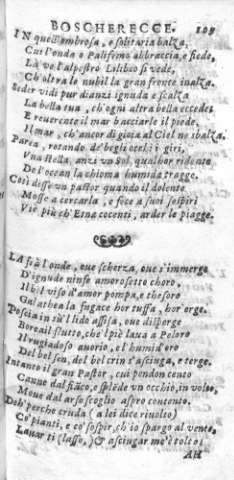 BOSCHERECCE. 109
IN quell'ombrosa, e solitaria balza,
Cui l'onda e Palisimo abbraccia e fiede,
La ve l'alpestro Lilibeo si vede,
Ch'oltra le nubil la gran fronte inalza.
Seder vidi pur dianzi ignuda e scalza
La bella tua, ch'ogni altra bella eccede:
E reuerente il mar bacciarle il piede,
Il mar, ch'ancor di gioia al Ciel ne sbalza.
Parea, rotando de' begli occhi i giri,
Vna Stella, anzi vn Sol, qualhor ridente
De l'ocean la chioma humida tragge.
Così disse vn pastor quando il dolente
Mosse a cercarla, e fece a suoi sospiri
Vie più ch'Etna cocenti, arder le piagge.
LA frà l'onde, oue scherza, oue s'immerge
D'ignude ninfe amorosetto choro,
Il bel viso d'amor pompa, e thesoro
Galathea la fugace hor tuffa, hor erge.
Poscia in sù'l lido assisa, oue disperge
Borea il flutto, che'l piè laua a Peloro
Il rugiadoso auorio, e l humid'oro
Del bel sen, del bel crin s'asciuga, e terge.
Intanto il gran Pastor, cui pendon cento
Canne dal fiãco, e splẽde vn occhio, in volto,
Moue dal arso scoglio aspro concento.
Deh'perche cruda (a lei dice riuolto)
Co' pianti, e co' sospir, ch'io spargo al vento,
Lauar ti (lasso,) & asciugar m'è tolto?
AH